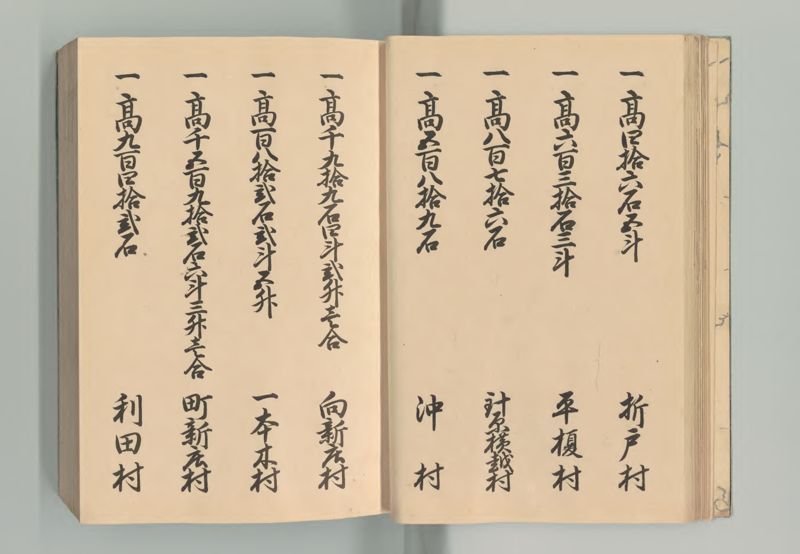 一高四拾六石五斗 折戸村
一高六百三拾石三斗 平榎村
一高八百七拾六石 針原稗越村
一高五百八拾九石 沖村
一高千九拾九石四斗弐升壱合 向新庄村
一高百八拾弐石弐斗五升 一本木村
一高千五百九拾弐石六斗三升壱合 町新庄村
一高九百四拾弐石 利田村